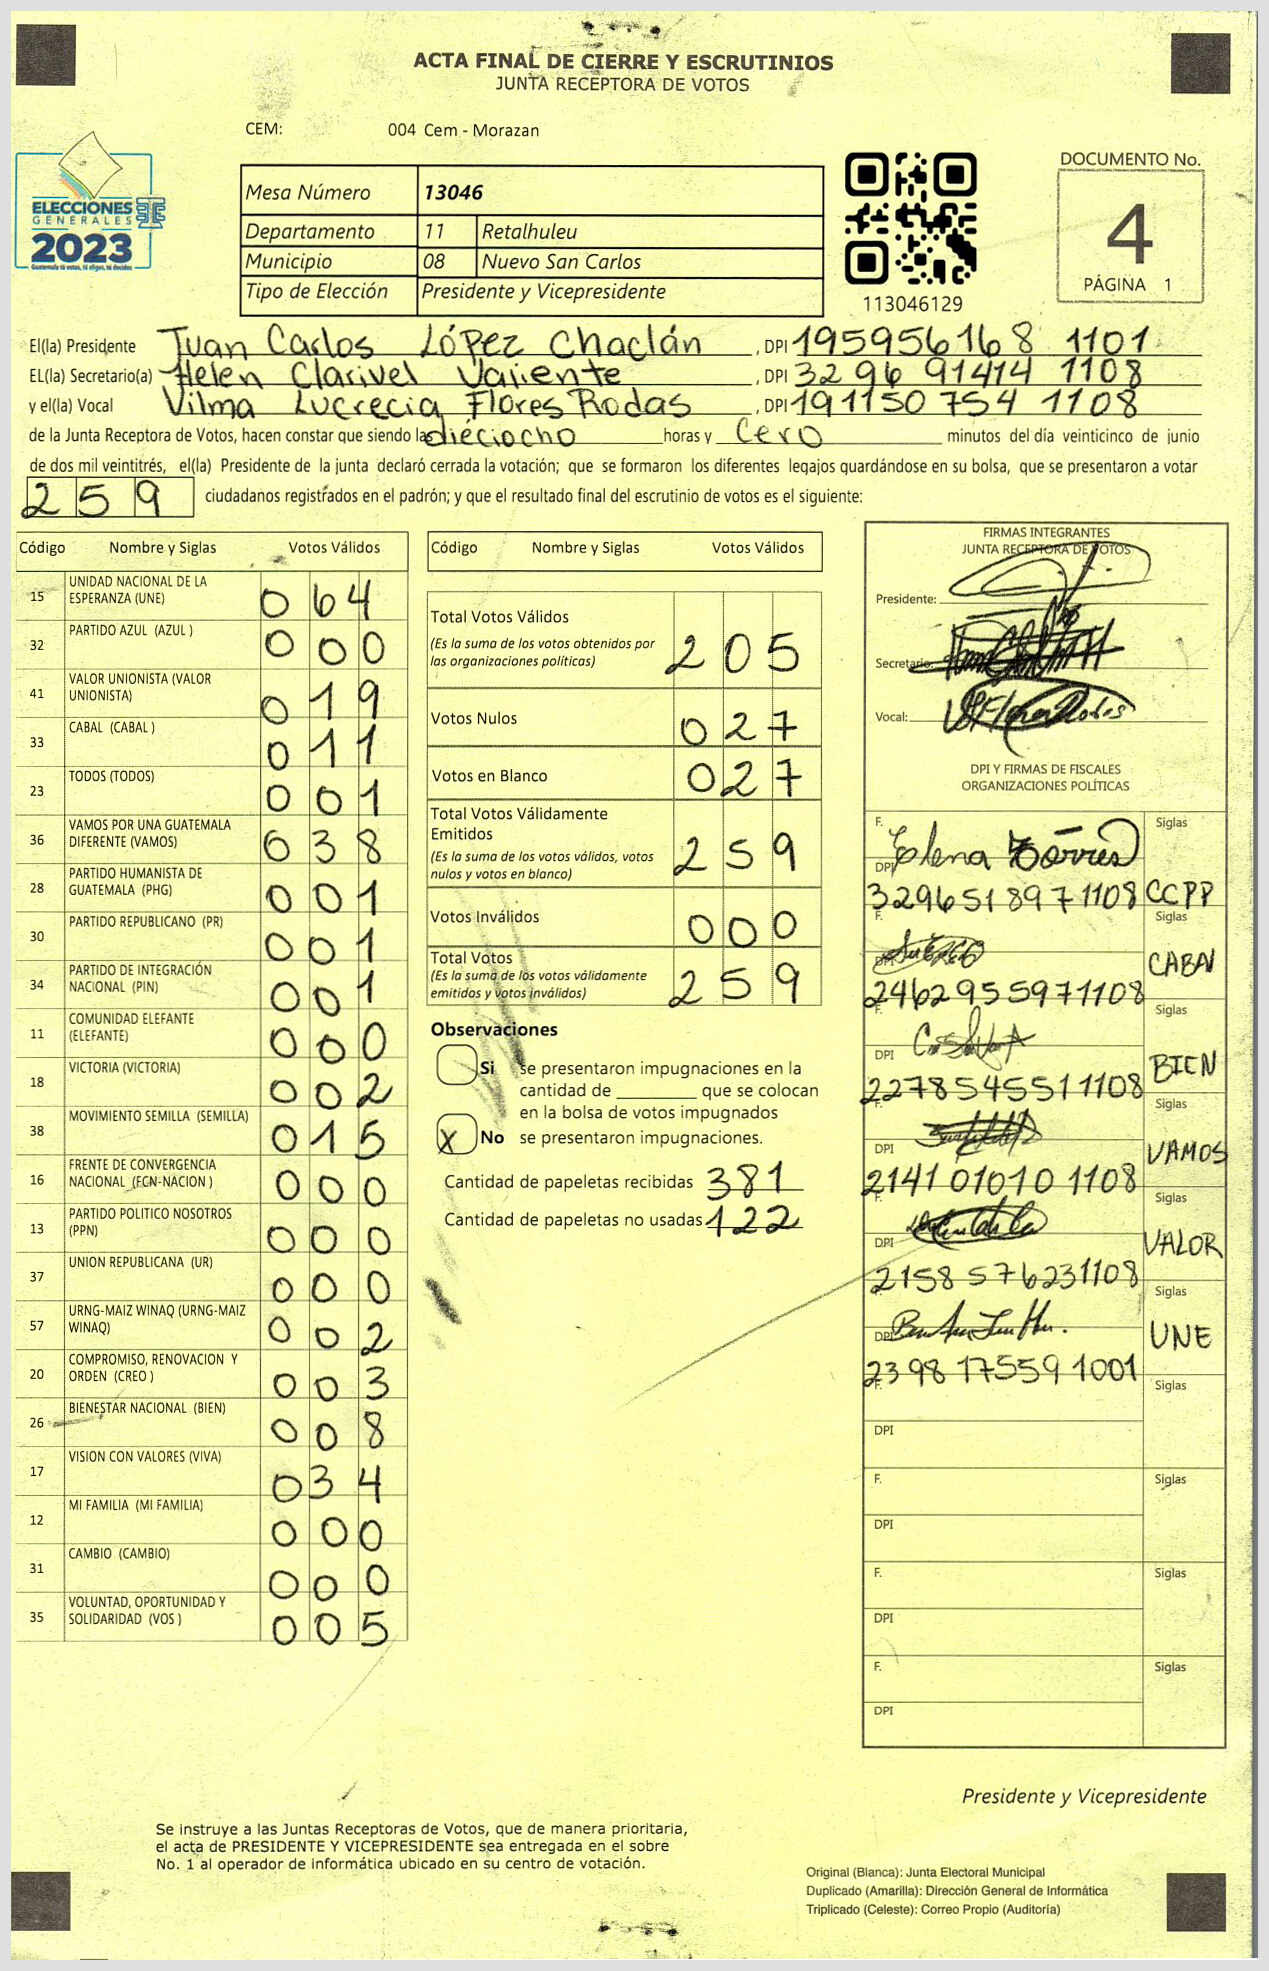 ACTA FINAL DE CIERRE Y ESCRUTINIOS
JUNTA RECEPTORA DE VOTOS
CEM: 004 Cem - Morazan
ELECCIONES
GENERALES
2023
Guatemala tú votas, tú eliges, tú decides
Mesa Número 13046
Departamento 11 Retalhuleu
Municipio 08 Nuevo San Carlos
Tipo de Elección Presidente y Vicepresidente
113046129
DOCUMENTO No.
4
PÁGINA 1
El(la) Presidente Juan Carlos López Chaclán , DPI 195956168 1101
EL(la) Secretario(a) Helen Clarivel Valiente , DPI 3296 91414 1108
y el(la) Vocal Vilma Lucrecia Flores Rodas , DPI 191150 754 1108
de la Junta Receptora de Votos, hacen constar que siendo las dieciocho horas y cero minutos del día veinticinco de junio
de dos mil veintitrés, el(la) Presidente de la junta declaró cerrada la votación; que se formaron los diferentes legajos guardándose en su bolsa, que se presentaron a votar
259 ciudadanos registrados en el padrón; y que el resultado final del escrutinio de votos es el siguiente:
Código Nombre y Siglas Votos Válidos
15 UNIDAD NACIONAL DE LA ESPERANZA (UNE) 064
32 PARTIDO AZUL (AZUL ) 000
41 VALOR UNIONISTA (VALOR UNIONISTA) 019
33 CABAL (CABAL ) 011
23 TODOS (TODOS) 001
36 VAMOS POR UNA GUATEMALA DIFERENTE (VAMOS) 038
28 PARTIDO HUMANISTA DE GUATEMALA (PHG) 001
30 PARTIDO REPUBLICANO (PR) 001
34 PARTIDO DE INTEGRACIÓN NACIONAL (PIN) 001
11 COMUNIDAD ELEFANTE (ELEFANTE) 000
18 VICTORIA (VICTORIA) 002
38 MOVIMIENTO SEMILLA (SEMILLA) 015
16 FRENTE DE CONVERGENCIA NACIONAL (FCN-NACION ) 000
13 PARTIDO POLITICO NOSOTROS (PPN) 000
37 UNION REPUBLICANA (UR) 000
57 URNG-MAIZ WINAQ (URNG-MAIZ WINAQ) 002
20 COMPROMISO, RENOVACION Y ORDEN (CREO ) 003
26 BIENESTAR NACIONAL (BIEN) 008
17 VISION CON VALORES (VIVA) 034
12 MI FAMILIA (MI FAMILIA) 000
31 CAMBIO (CAMBIO) 000
35 VOLUNTAD, OPORTUNIDAD Y SOLIDARIDAD (VOS ) 005
Código Nombre y Siglas Votos Válidos
Total Votos Válidos 205
(Es la suma de los votos obtenidos por
las organizaciones políticas)
Votos Nulos 027
Votos en Blanco 027
Total Votos Válidamente
Emitidos 259
(Es la suma de los votos válidos, votos
nulos y votos en blanco)
Votos Inválidos 000
Total Votos 259
(Es la suma de los votos válidamente
emitidos y votos inválidos)
Observaciones
Si se presentaron impugnaciones en la
cantidad de ________ que se colocan
en la bolsa de votos impugnados
X No se presentaron impugnaciones.
Cantidad de papeletas recibidas 381
Cantidad de papeletas no usadas 122
FIRMAS INTEGRANTES
JUNTA RECEPTORA DE VOTOS
Presidente:
Secretario:
Vocal:
DPI Y FIRMAS DE FISCALES
ORGANIZACIONES POLÍTICAS
F. Elena Torres Siglas
DPI 329651 897 1108 CCPP
F. Siglas
DPI 2462955971108 CABAl
F. Siglas
DPI 2278545511108 BIEN
F. Siglas
DPI 2141 01010 1108 VAMOS
F. Siglas
DPI 2158 576231108 VALOR
F. Siglas
DPI 2398 17559 1001 UNE
F. Siglas
DPI
F. Siglas
DPI
F. Siglas
DPI
F. Siglas
DPI
Presidente y Vicepresidente
Se instruye a las Juntas Receptoras de Votos, que de manera prioritaria,
el acta de PRESIDENTE Y VICEPRESIDENTE sea entregada en el sobre
No. 1 al operador de informática ubicado en su centro de votación.
Original (Blanca): Junta Electoral Municipal
Duplicado (Amarilla): Dirección General de Informática
Triplicado (Celeste): Correo Propio (Auditoría)